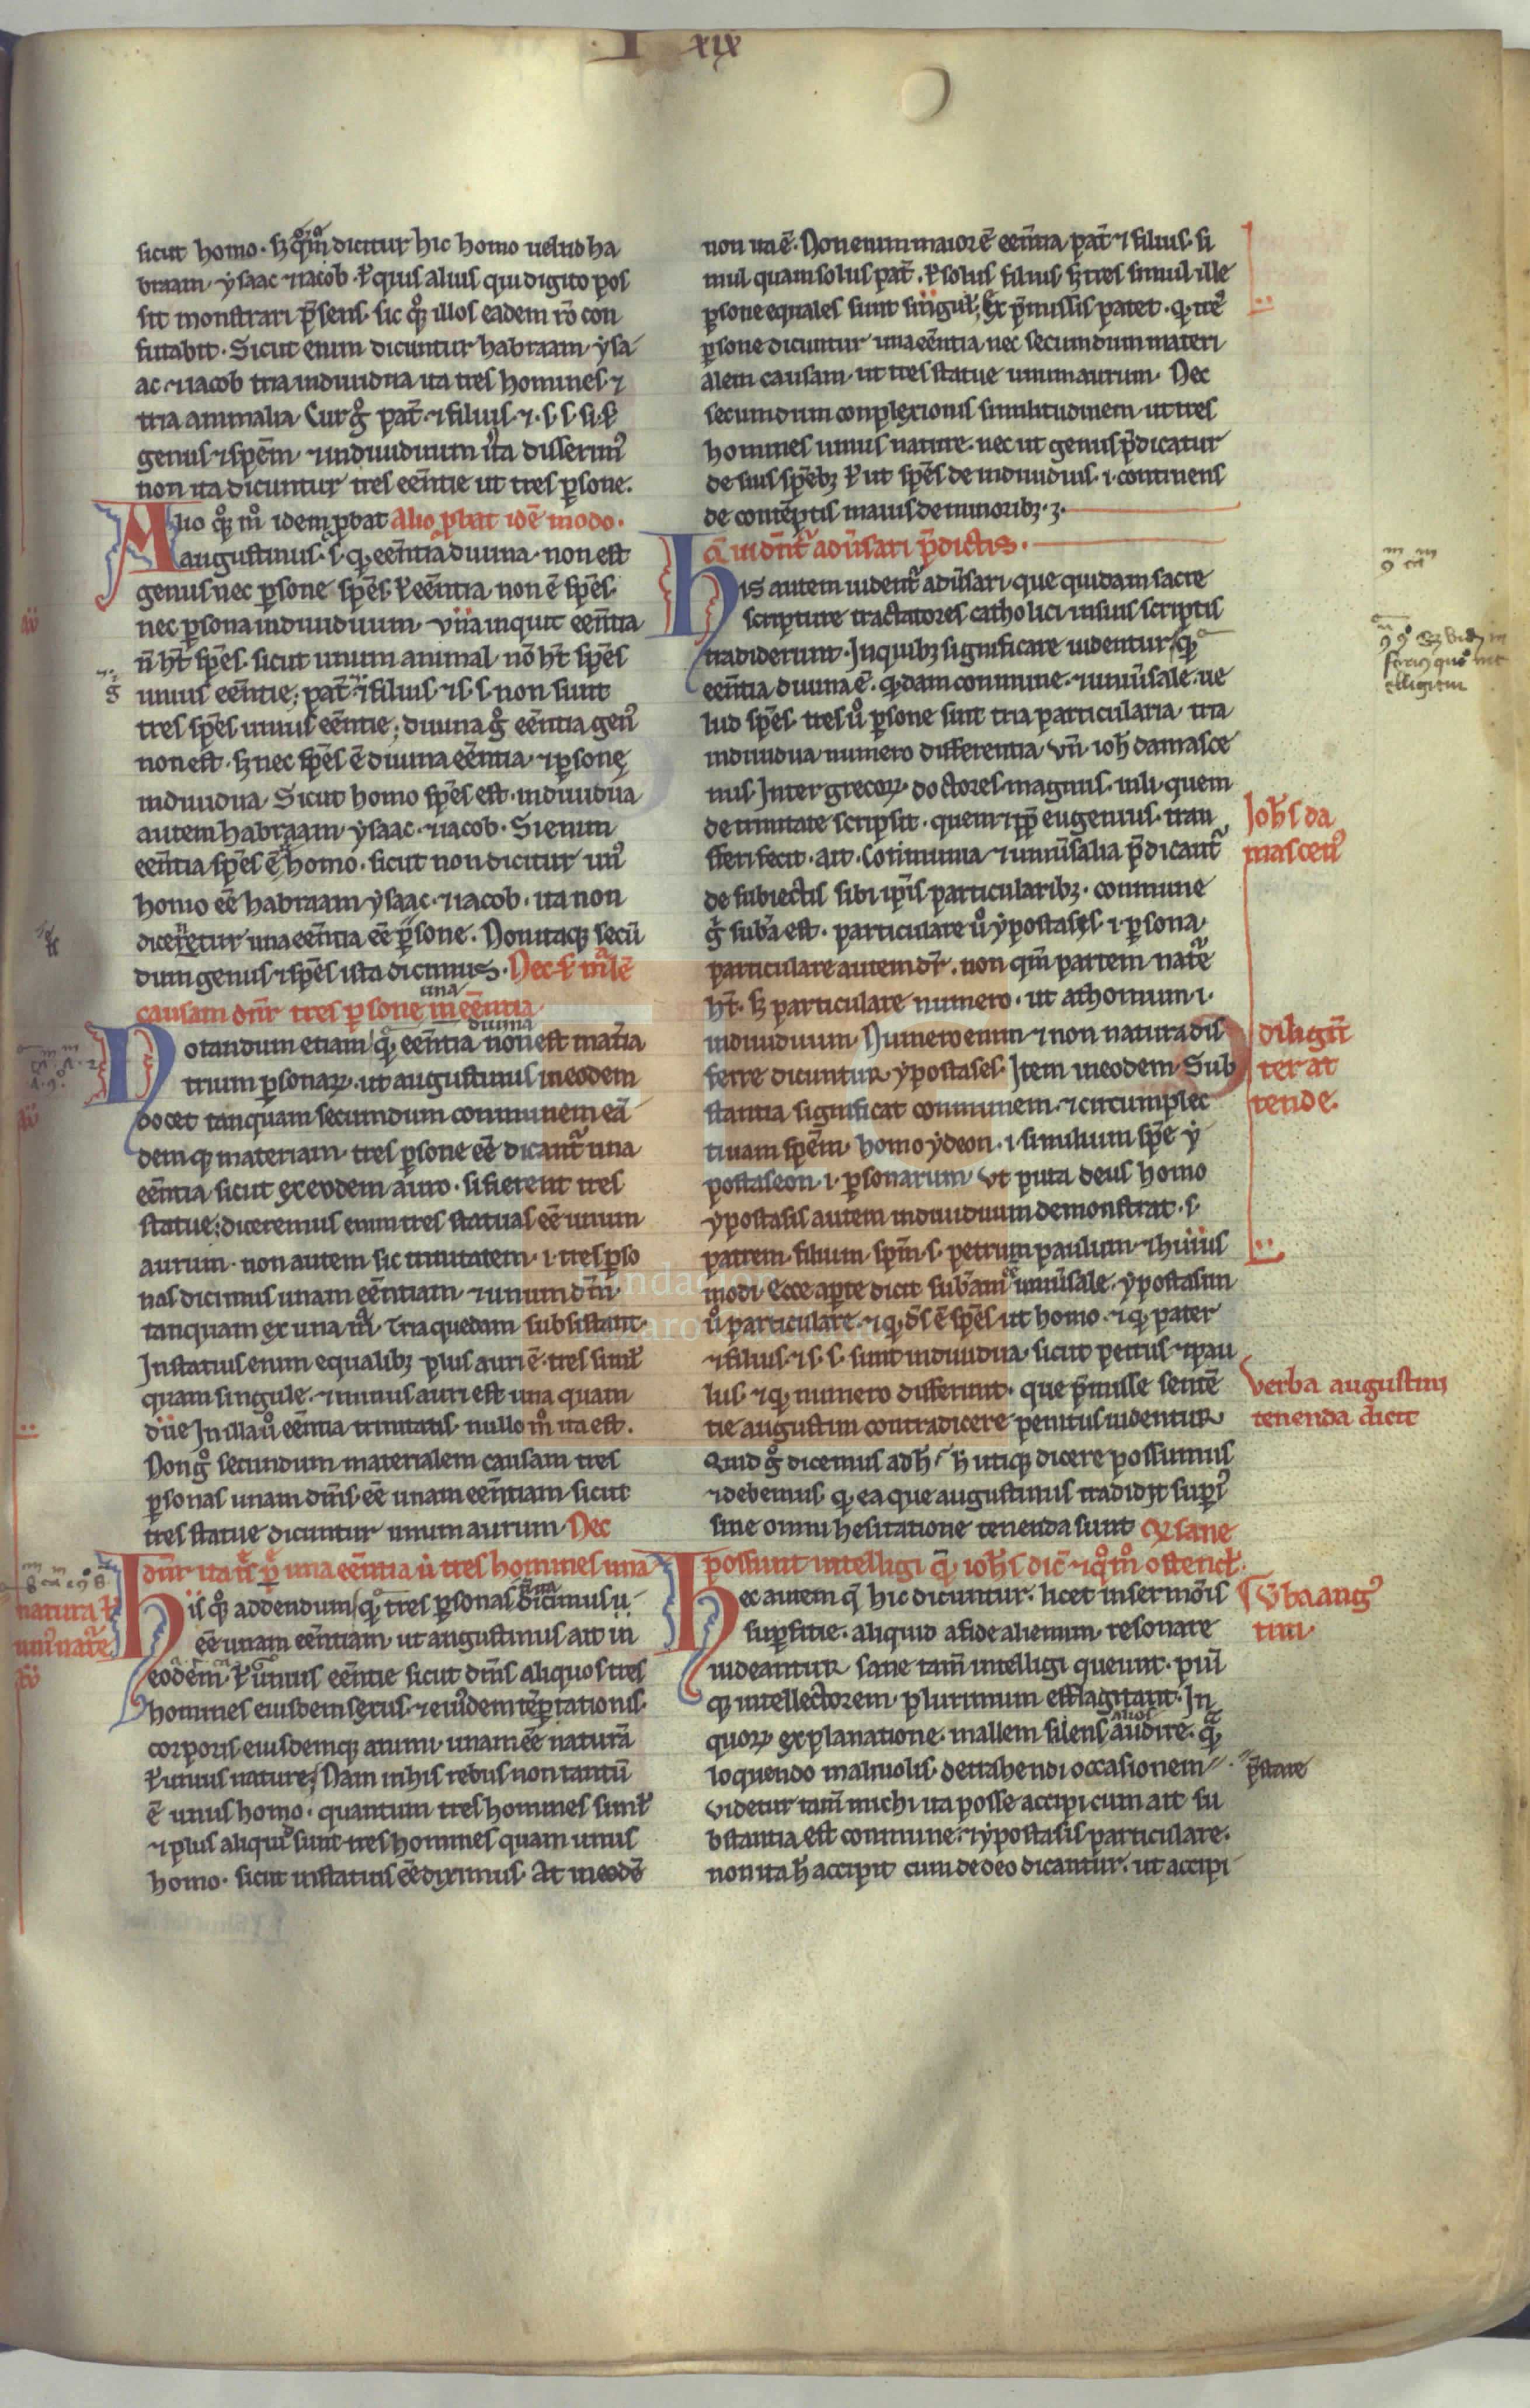 I xix
sicut homo. sꝫ qm̄ dicitur hic homo uelud ha
braam. ysaac ⁊iacob. ł quis alius qui digito pos
sit monstrari p̄sens. sic qͦꝫ illos eadem rō con
futabit. Sicut enim dicuntur habraam. ysa
ac. ⁊iacob tria indiuidua ita tres homines. ⁊
tria animalia. Cur gͦ pat̄. ⁊filius. ⁊.s.s. si.ẜ
genus. ⁊spēm ⁊indiuiduum ita disserimꝰ
non ita dicuntur tres eēntie ut tres ꝑsone.
Alio qͦꝫ mͦ idem ꝓbat Alio ꝓbat idē modo.
augustinus. s. ꝙ eēntia diuina. non est
genus nec ꝑsone spēs. ł eēntia. non ē spēs.
nec ꝑsona indiuiduum. vna inquit eēntia
n̄ hꝫt spēs. sicut unum animal. nō hꝫt spēs
unius eēntie; pat̄ ⁊filius. ⁊s. s. non sunt
tres spēs unius eēntie; diuina gͦ eēntia genꝰ
non est. sꝫ nec spēs ē diuina eēntia. ⁊ꝑsonę
indiuidua. Sicut homo spēs est. indiuidua
autem habraam. ysaac. ⁊iacob. Si enim
eēntia spēs ē, homo. sicut non dicitur unꝰ
homo eē habraam ysaac. ⁊iacob. ita non
diceretur una eēntia eē ꝑsone. Non itaqꝫ secū
dum genus. ⁊spēs ista dicimus. Nec ẜ mͣlē
causam dn̄r tres ꝑsone una eēntia.
Notandum etiam ꝙ eēntia diuina non est mat̄ia
trium ꝑsonaꝝ. ut augustinus in eodem
docet tanquam secundum communem eā
demqꝫ materiam. tres ꝑsone eē dicant᷑ una
eēntia sicut ex eodem auro. si fierent tres
statue; diceremus enim tres statuas eē unum
aurum. non autem sic trinitatem. i. tres ꝑso
nas dicimus unam eēntiam. ⁊unum dm̄.
tanquam ex una mͣ. tria quedam subsistant.
In statuis enim equalibꝫ plus auri ē. tres simł
quam singule. ⁊minus auri est una quam
due In illa uͦ eēntia trinitatis. nullo mͦ ita est.
Non gͦ secundum materialem causam tres
ꝑsonas unam dm̄s. eē unam eēntiam. sicut
tres statue dicuntur unum aurum. Nec
dn̄r ita una eēntia ut tres homines una
natura ł
unꝰ nat̄e
His qͦꝫ addendum ꝙ tres ꝑsonas dicimus
eē unam eēntiam. ut augustinus ait in
eodem ł unius eēntie sicut dm̄s aliquos tres
homines eiusdem sexus. ⁊eiꝰdem tēꝑationis.
corporis. eiusdemqꝫ animi. unam eē naturā
ł unius nature; Nam in his rebus non tantū
ē unus homo. quantum tres homines simł
⁊plus aliquid sunt tres homines quam unus
homo. sicut in statuis eē diximus. At in eodē
non ita ē. Non enim maior ē eēntia pat̄ ⁊ filius. si
mul quam solus pat̄. ł solus filius. sꝫ tres simul ille
ꝑsone equales sunt singuł. Ex p̄missis patet. ꝙ tres
ꝑsone dicuntur una eēntia. nec secundum materi
alem causam. ut tres statue unum aurum. Nec
secundum conplexionis similitudinem. ut tres
homines unius nature. nec ut genus p̄dicatur
de suis spēbꝫ ł ut spēs de indiuiduis. i. continens
de contēptis maius de minoribꝫ.
Q̄ uident᷑ adūsari p̄dictis.
His autem uident᷑ adūsari. que quidam sacre
scripture tractatores catholici in suis scriptis
tradiderunt. In quibꝫ significare uidentur ꝙ
eēntia diuina ē. qͦdam commune. ⁊uniūsale. ue
lud spēs. tres uͦ ꝑsone sint tria particularia. tria
indiuidua numero differentia. vn̄ ioh̄ damasce
nus. Inter grecoꝝ. doctores magnus. in li. quem
de trinitate scripsit. quem ⁊pp̄ eugenius. tran
sferri fecit. ait. Communia ⁊uniūsalia p̄dicant᷑
de subiectis sibi ip̄is particularibꝫ. commune
gͦ sub̄a est. particulare uͦ ypostases. i. ꝑsona.
particulare autem dr̄. non qm̄ partem nat̄e
hꝫt. sꝫ particulare numero. ut athomum. i.
indiuiduum. Numero enim ⁊ non natura dif
ferre dicuntur ypostases. Item in eodem. Sub
stantia significat communem. ⁊circumplec
tiuam spēm. homoydeon. i. similium spēe. y
postaseon. i. ꝑsonarum. ut puta deus homo
ypostasis autem indiuiduum demonstrat. s.
patrem. filium. spm̄. s. petrum paulum. ⁊huius
modi. Ecce aꝑte dicit sub̄am uniūsale. ypostasim
uͦ particulare. ⁊ꝙ ds̄ ē spēs ut homo. ⁊ꝙ pater
⁊filius. ⁊s. s. sunt indiuidua. sicut petrus ⁊pau
lus. ⁊ꝙ numero differunt. que p̄misse sentē
tie augustini contradicere penitus uidentur
Quid gͦ dicemus ad h̄. h̄ utiqꝫ dicere possumus
⁊debemus. ꝙ ea que augustinus tradidit supiꝰ
sine omni hesitatione tenenda sunt. Q sane
possunt intelligi q̄ ioh̄s dic̄ ⁊qͦmͦ ostendit.
Hec autem q̄ hic dicuntur. licet in sermōis
suꝑfitie. aliquid a fide alienum. resonare
uideantur. sane tam̄ intelligi queunt. piū
qꝫ intellectorem plurimum efflagitant. In
quoꝝ explanatione. mallem silens alios audire. qͣ
loquendo maliuolis. detrahendi occasionem p̄stare
videtur tam̄ michi ita posse accipi cum ait su
bstantia est commune. ⁊ypostasis particulare.
non ita h̄ accipit cum de deo dicantur. ut accipi
Joh̄s da
mascenꝰ
diligen̄
ter at
tende.
verba augustini
tenenda dicit
Ūba augꝰ
tini